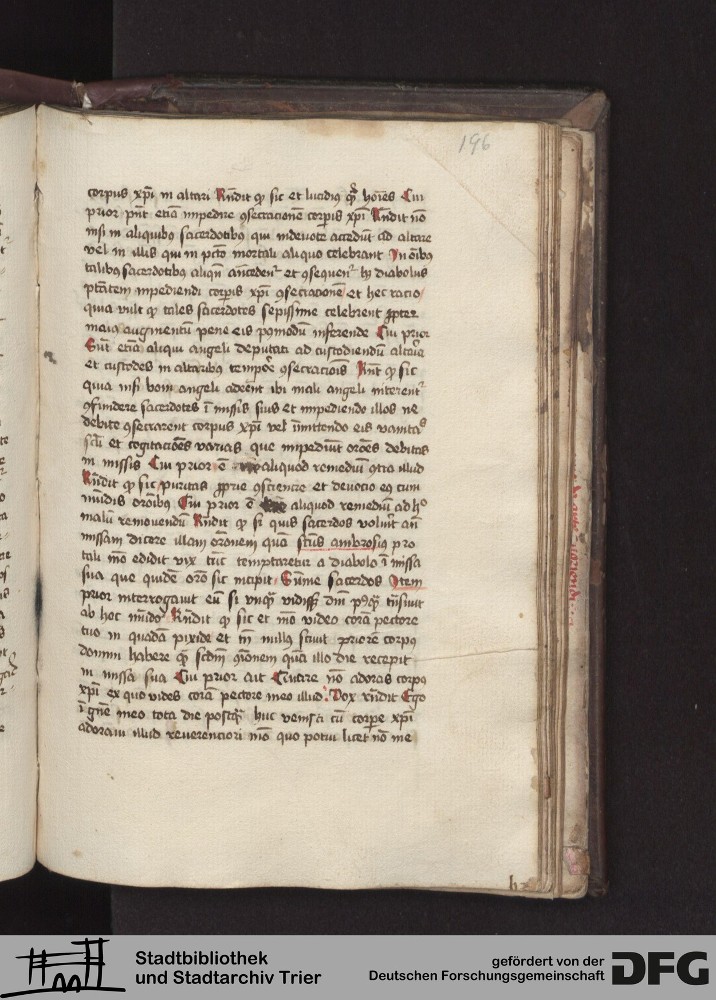 196
corpus xpi in altari Rñdit qp sic et lucidius qm̃ hoiẽs Cui
prior pñt etiã impedire ꝯsecrationẽ corpis xpi Rñdit nõ
nisi in aliquibus sacerdotibus qui indevote accedũt ad altare
vel in illis qui in pctõ mortali aliquo celebrant In oĩbus
talibus sacerdotibus aliqñ ãnceden̄ et ꝯsequen̄ hz diabolus
ptãtem impediendi corpis xpi ꝯsecrationẽ et hec ratio
quia vult qp tales sacerdotes sepissime celebrent ꝓpter
maius augmentũ pene eis pꝰmodũ inferende Cui prior
Sũt etiã aliqui angeli deputati ad custodiendũ altaria
et custodes in altaribus tempore ꝯsecracionis Rñt qp sic
quia nisi boni angeli adeẽnt ibi mali angeli
ꝯfundere sacerdotes ĩ missis suis et impediendo illos ne
debite ꝯsecrarent corpus xpi vel ĩmittendo eis vanitas
et cogitaciões varias que impediũt orões debitas
in missis Cui prior ẽ aliquod remediũ ꝯtra illud
Rñdit qp sic puritas ꝓprie ꝯsciencie et devocio eq cum
mũdis oraõibus Cui prior ẽ aliquod remediũ ad hoc
malũ removendũ Rñdit qp si quis sacerdos voluerit añ
missam dicere illam orõnem quã sctũs ambrosius pro
tali mõ edidit vix tũc temptaretur a diabolo ĩ missa
sua que quidẽ orõ sic incipit Sũme sacerdos Item
prior interrogavit eũ si unqã vidisset dñm pꝰqã trãsivit
ab hoc mũdo Rñdit qp sic et mõ video corã pectore
tuo in quadã pixide et tñ nullus scivit priorẽ corpus
domini habere
in missa sua Cui prior ait Cur nõ adoras corpus
xpi ex quo vides corã pectore meo illud Vox rñdit Ego
ĩ gñe meo tota die postqã huc venisti cũ corpe xpi
adoravi illud reverenciori mõ quo potui licet nõ me
Stadtbibliothek
und Stadtarchiv Trier
gefördert von der
Deutschen Forschungsgemeinschaft
DFG